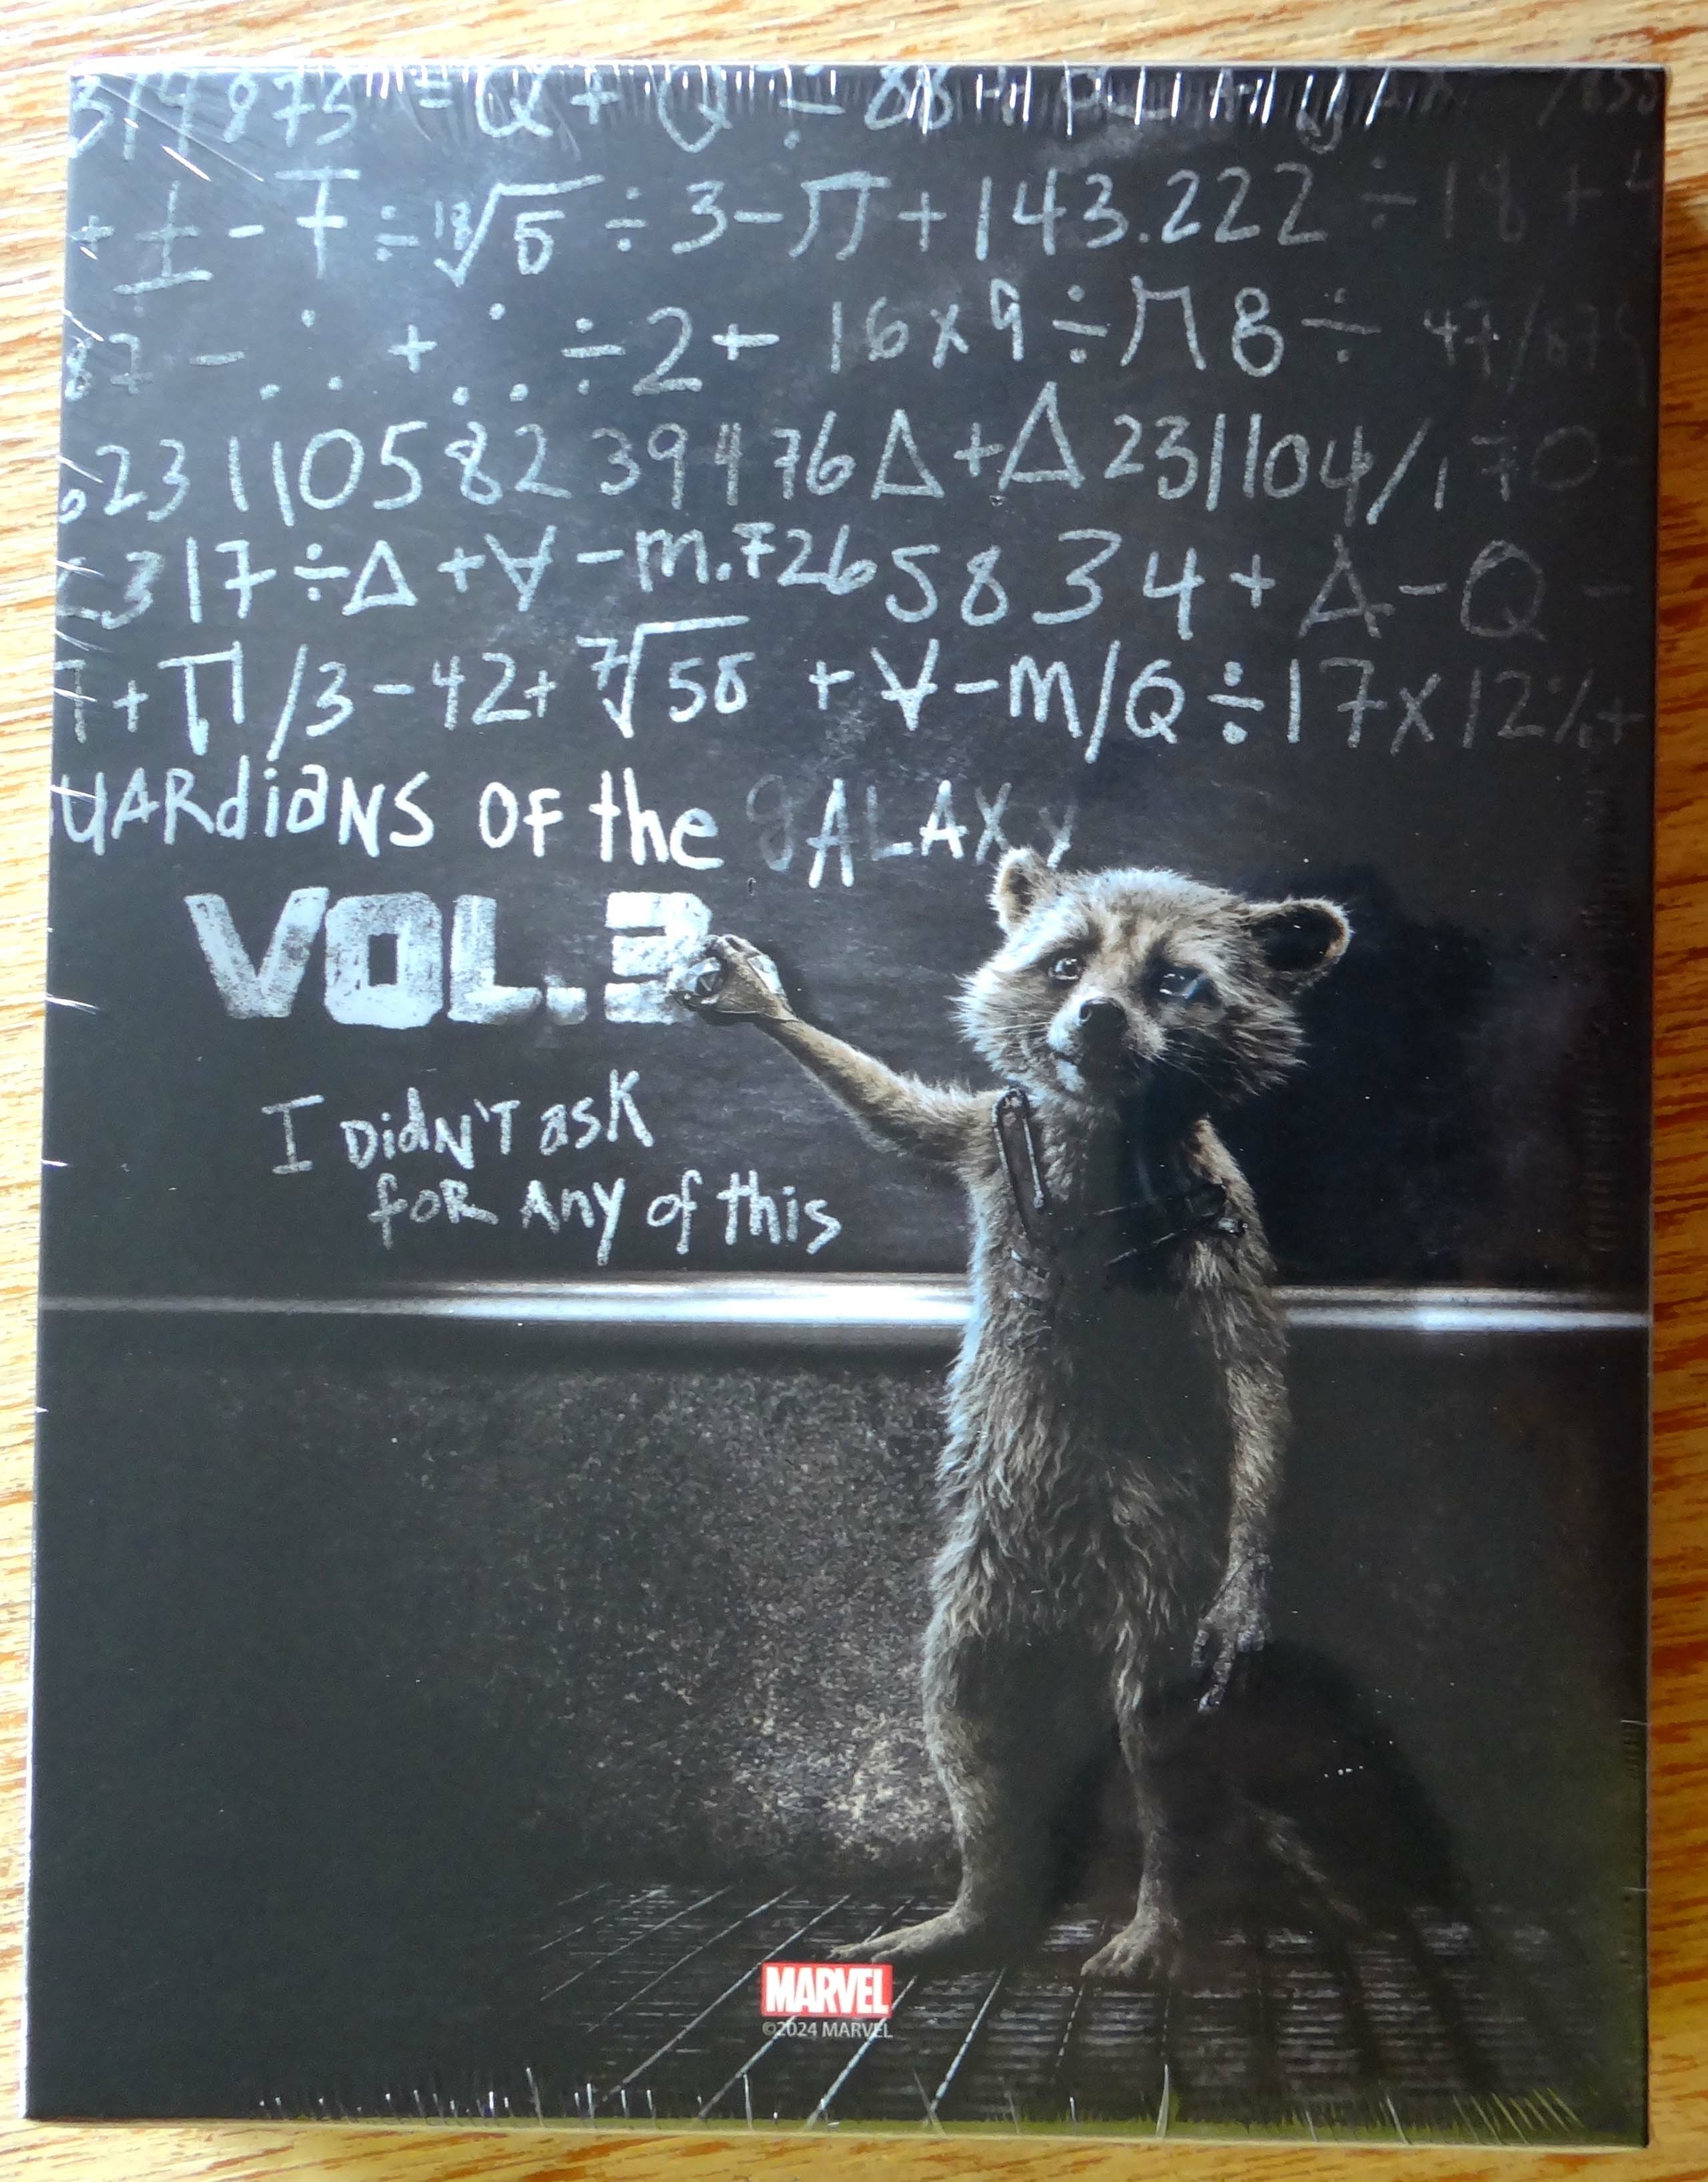 314 975 = Q + Q ÷ 88 +
+ ± - 7 ÷ 18√5 ÷ 3 - π + 143.222 ÷ 18 +
87 - ∴ + ∴ ÷ 2 + 16 x 9 ÷ П 8 ÷ 47/875
623 1105 82 39476 Δ + Δ 231104/170
2317 ÷ Δ + ∀ - m.7265834 + Δ - Q -
7 + π/3 - 42 + 7√58 + ∀ - m/Q ÷ 17 x 12% +
UARdiaNS OF the gALAXy
VOL. 3
I DidN'T ask
foR Any of this
MARVEL
©2024 MARVEL